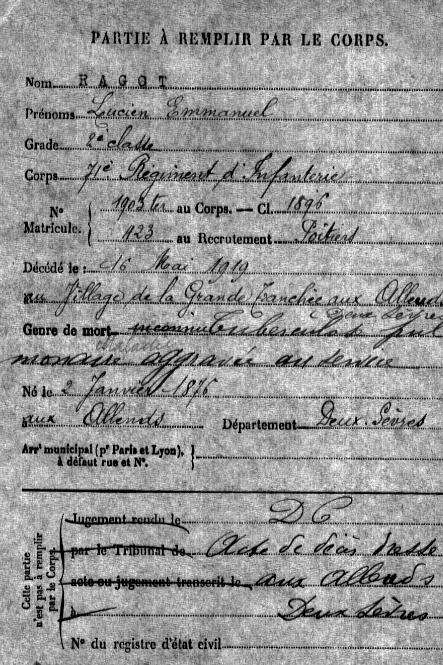 PARTIE À REMPLIR PAR LE CORPS.
Nom RAGOT
Prénoms Lucien Emmanuel
Grade 2e classe
Corps 71e Régiment d'Infanterie
N° Matricule. 1903 ter au Corps. — Cl. 1896
923 au Recrutement Poitiers
Décédé le : 16 Mai 1919
au Village de la Grand Tranchée aux Alleuds
Deux Sèvres
Genre de mort inconnu Tuberculose pul
monaire aggravée au service
Né le 2 Janvier 1876
aux Alleuds Département Deux-Sèvres
Arrt municipal (pr Paris et Lyon),
à défaut rue et N°.
Cette partie
n'est pas à remplir
par le Corps.
Jugement rendu le D C
par le Tribunal de Acte de décès dressé
acte ou jugement transcrit le aux Alleuds
à Deux Sèvres
N° du registre d'état civil